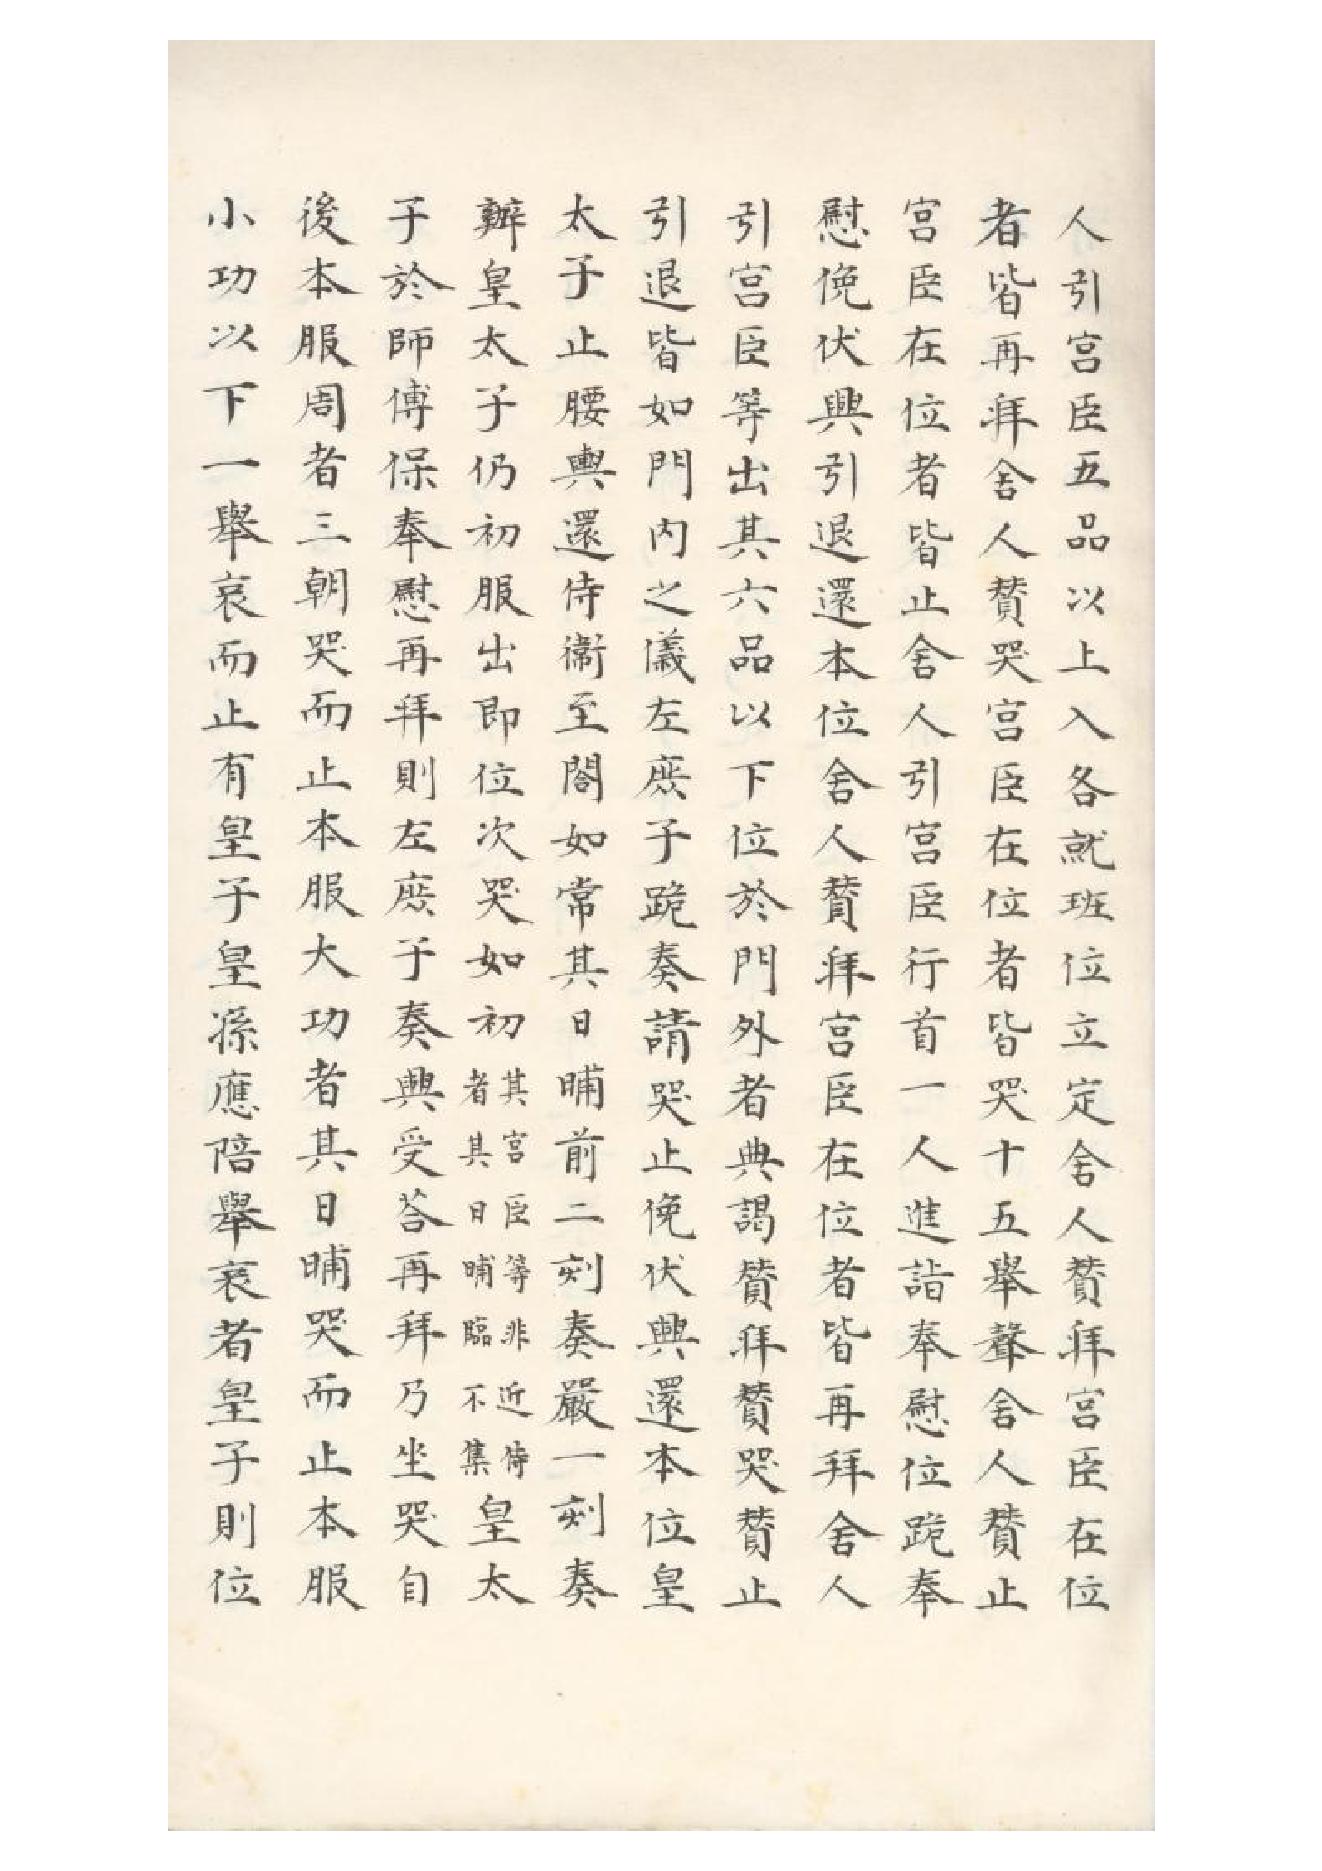 人引宮臣五品以上入各就班位立定舍人賛拜宮臣在位
者皆再拜舍人賛哭宮臣在位者皆哭十五舉聲舍人賛止
宮臣在位者皆止舍人引宮臣行首一人進詣奉慰位跪奉
慰俛伏興引退還本位舍人賛拜宮臣在位者皆再拜舍人
引宮臣等出其六品以下位於門外者典謁賛拜賛哭賛止
引退皆如門内之儀左庶子跪奏請哭止俛伏興還本位皇
太子止腰輿還侍衞至閤如常其日晡前二刻奏嚴一刻奏
辦皇太子仍初服出即位次哭如初其宮臣等非近侍者其日晡臨不集皇太
子於師傅保奉慰再拜則左庶子奏興受荅再拜乃坐哭自
後本服周者三朝哭而止本服大功者其日晡哭而止本服
小功以下一舉哀而止有皇子皇孫應陪舉哀者皇子則位